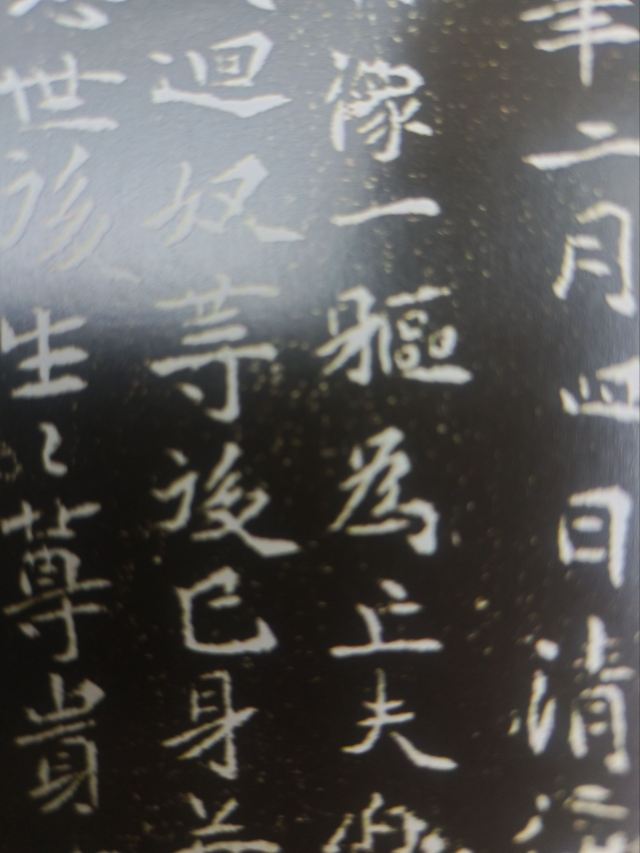 年二月四日清
像一軀為亡夫
迴奴等後己身
世後生〻尊貴